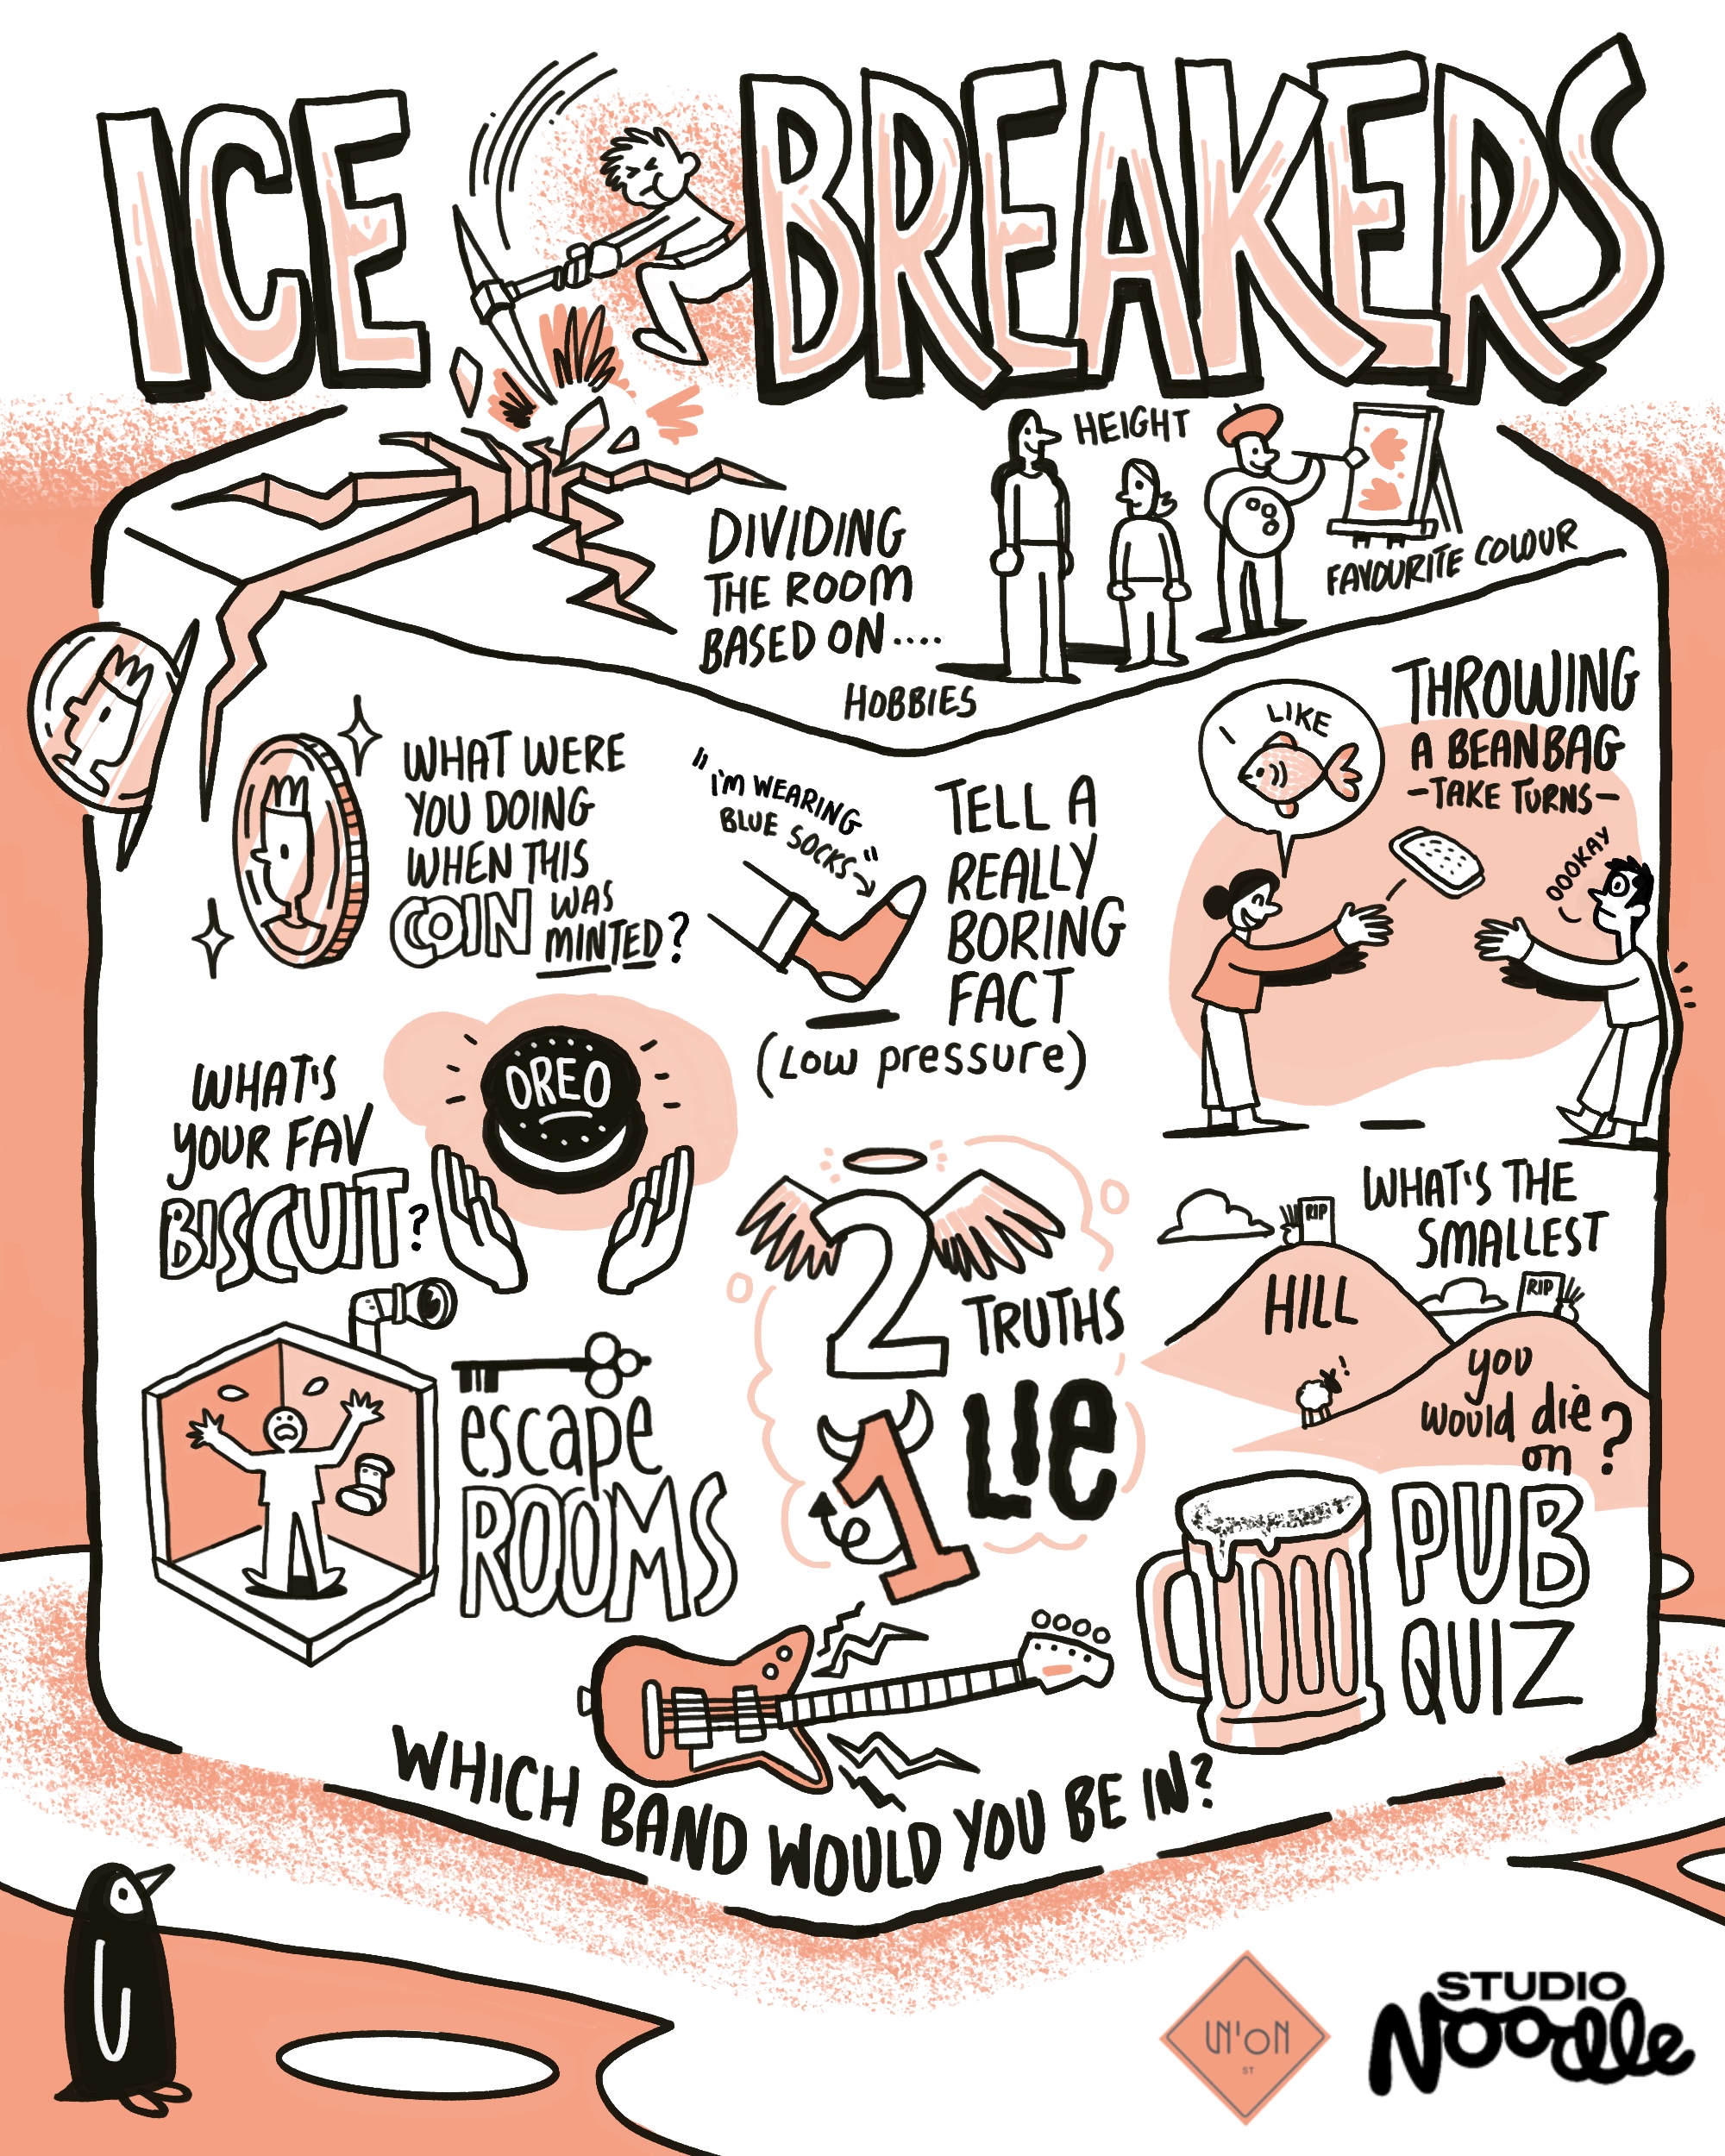 ICE BREAKERS
DIVIDING
THE ROOM
BASED ON....
HEIGHT
FAVOURITE COLOUR
HOBBIES
WHAT WERE
YOU DOING
WHEN THIS
COIN WAS
MINTED?
"I'M WEARING
BLUE SOCKS"
TELL A
REALLY
BORING
FACT
(Low pressure)
THROWING
A BEANBAG
-TAKE TURNS-
I LIKE
OOOKAY
WHAT'S
YOUR FAV
BISCUIT?
OREO
2 TRUTHS
1 LIE
WHAT'S THE
SMALLEST
RIP
HILL
RIP
you
would die
on ?
escape
ROOMS
PUB
QUIZ
WHICH BAND WOULD YOU BE IN?
UN'ON
ST
STUDIO
Noodle